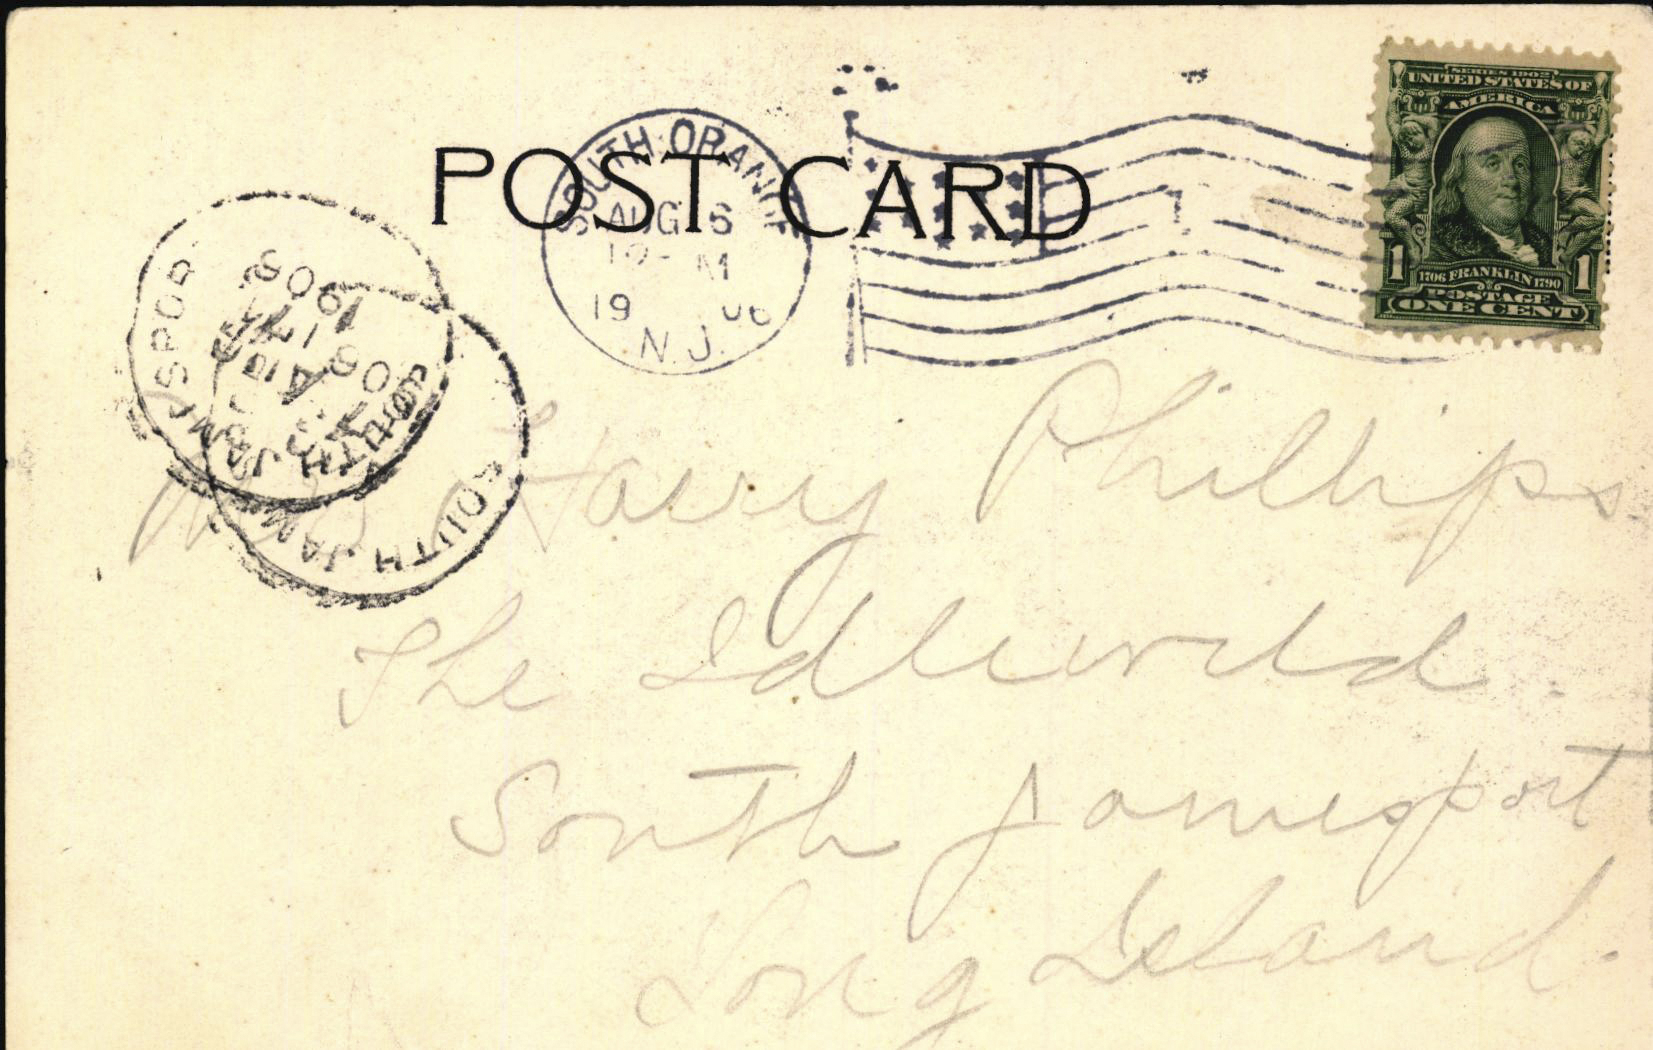 SERIES 1902
UNITED STATES OF
AMERICA
1 1706 FRANKLIN 1790 1
POSTAGE
ONE CENT
POST CARD
SOUTH ORANGE
AUG 6
M
19 06
N.J.
SOUTH JAMESPOR
1906
SOUTH JAM
Harry Phillips
The Idlewild.
South Jamesport
Long Island.